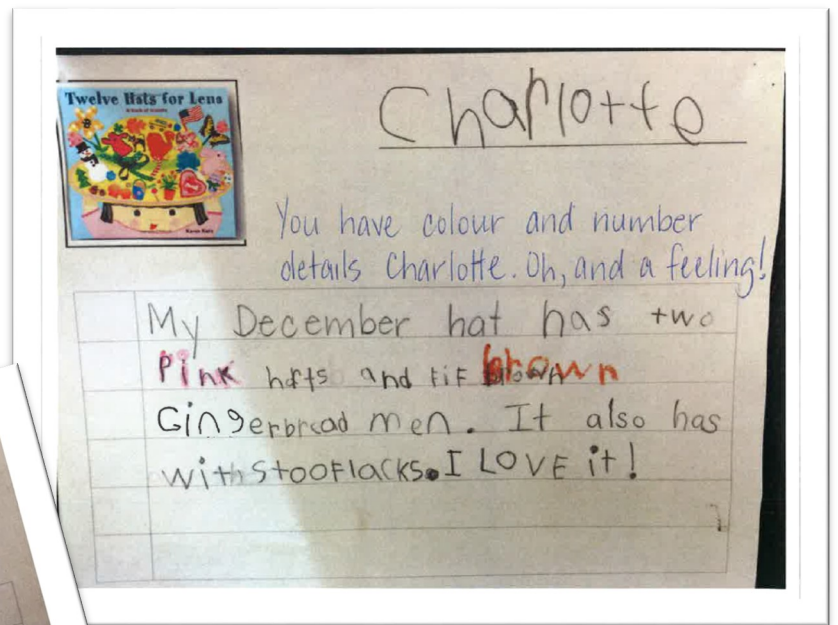 Twelve Hats for Lena
Karen Katz
Charlotte
You have colour and number
details Charlotte. Oh, and a feeling!
My December hat has two
Pink hafts and fif brown
Gingerbread men. It also has
with stooflacks. I LOVE it!